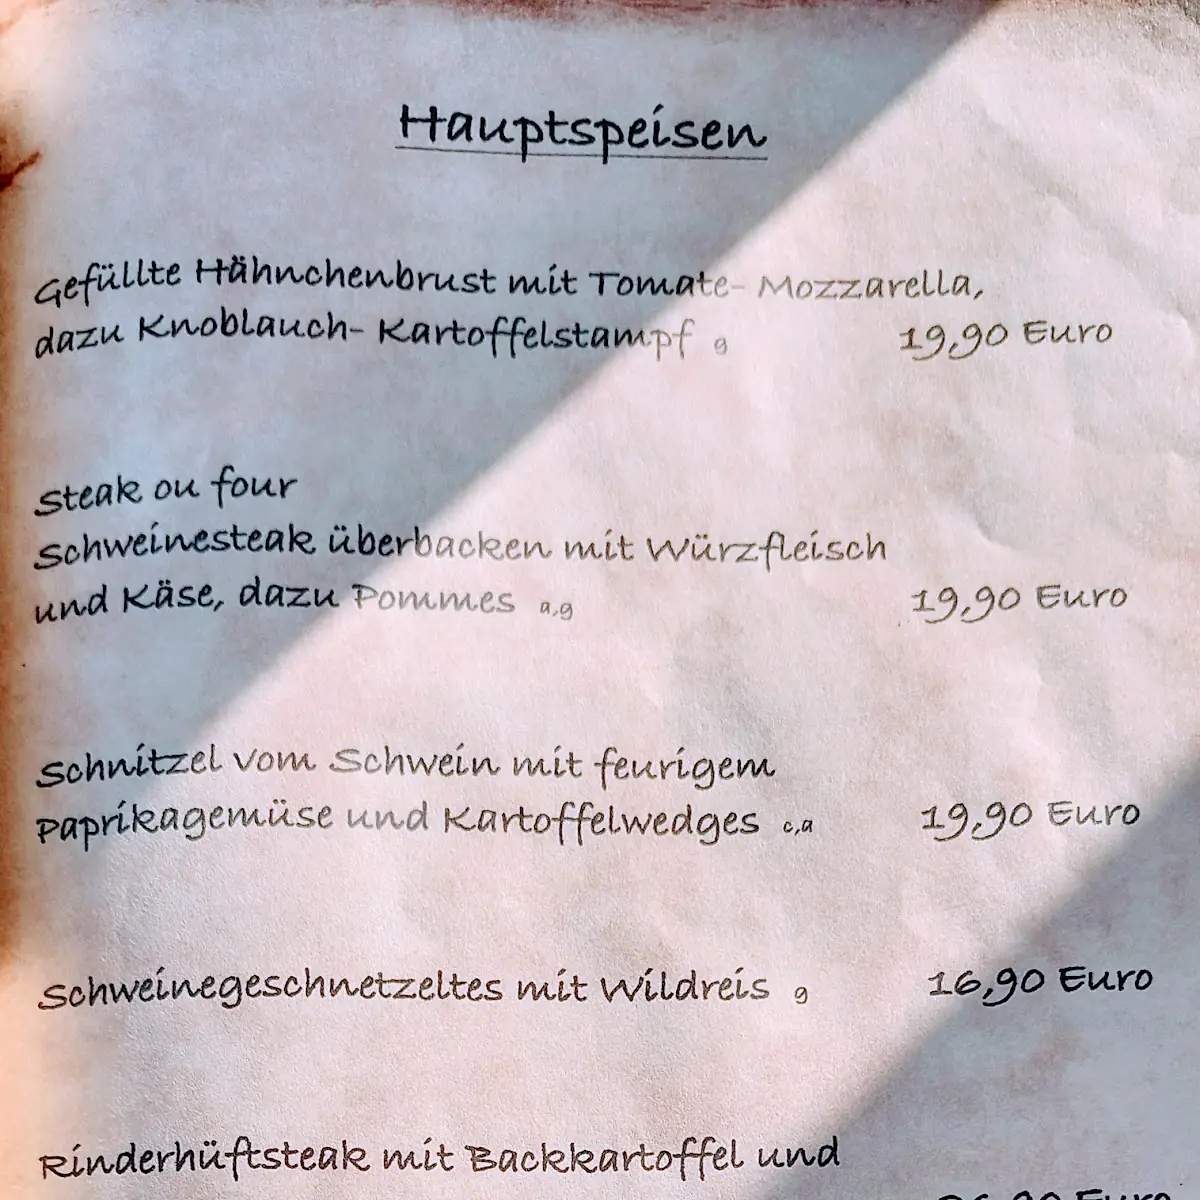 Hauptspeisen
Gefüllte Hähnchenbrust mit Tomate- Mozzarella,
dazu Knoblauch- Kartoffelstampf g 19,90 Euro
Steak ou four
Schweinesteak überbacken mit Würzfleisch
und Käse, dazu Pommes a,g 19,90 Euro
Schnitzel vom Schwein mit feurigem
Paprikagemüse und Kartoffelwedges c,a 19,90 Euro
Schweinegeschnetzeltes mit Wildreis g 16,90 Euro
Rinderhüftsteak mit Backkartoffel und